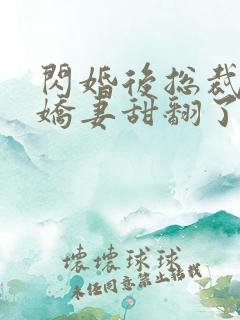 閃婚後总裁
嬌妻甜翻了
壞壞球球
未任同意禁止转载